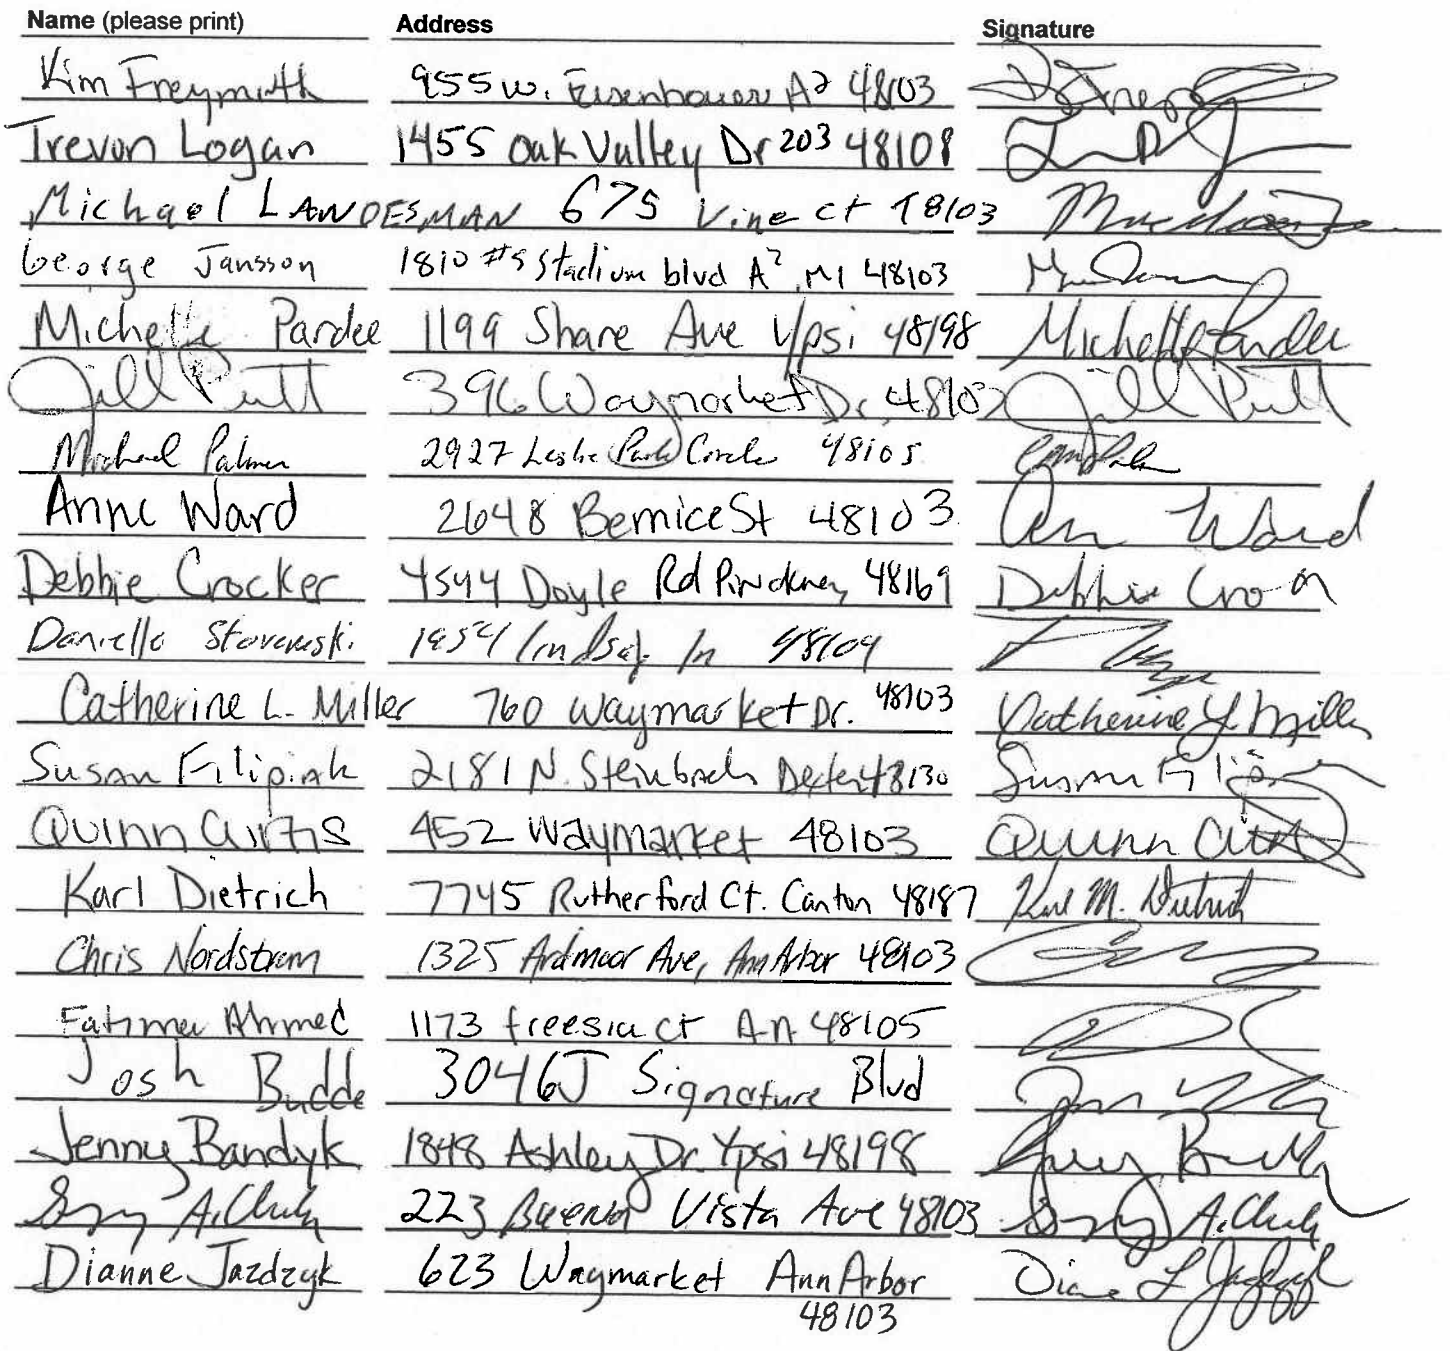 Name (please print) Address Signature
Kim Freymuth 955 W. Eisenhower A2 48103
Trevon Logan 1455 Oak Valley Dr 203 48108
Michael LANDESMAN 675 Vine ct 48103
George Jansson 1810 #9 Stadium blvd A2, MI 48103
Michelle Pardee 1199 Share Ave Ypsi 48198 Michelle Pardee
Jill Putt 396 Waymarket Dr. 48103 Jill Putt
Michael Palmer 2927 Leslie Park Circle 48105
Anne Ward 2648 Bernice St 48103 Ann Ward
Debbie Crocker 4544 Doyle Rd Pinckney 48169 Debbie
Danielle 1954 Lindsay ln 48104
Catherine L. Miller 760 Waymarket Dr. 48103 Catherine L. Miller
Susan Filipiak 2181 N. Steinbach Dexter 48130 Susan
Quinn Curtis 452 Waymarket 48103 Quinn
Karl Dietrich 7745 Rutherford Ct. Canton 48187 Karl M. Dietrich
Chris Nordstrom 1325 Ardmoor Ave, Ann Arbor 48103
Fatima Ahmed 1173 freesia ct A A 48105
Josh Budde 3046J Signature Blvd
Jenny Bandyk 1848 Ashley Dr. Ypsi 48198
A. 223 Buena Vista Ave 48103 A.
Dianne Jazdzyk 623 Waymarket Ann Arbor
48103